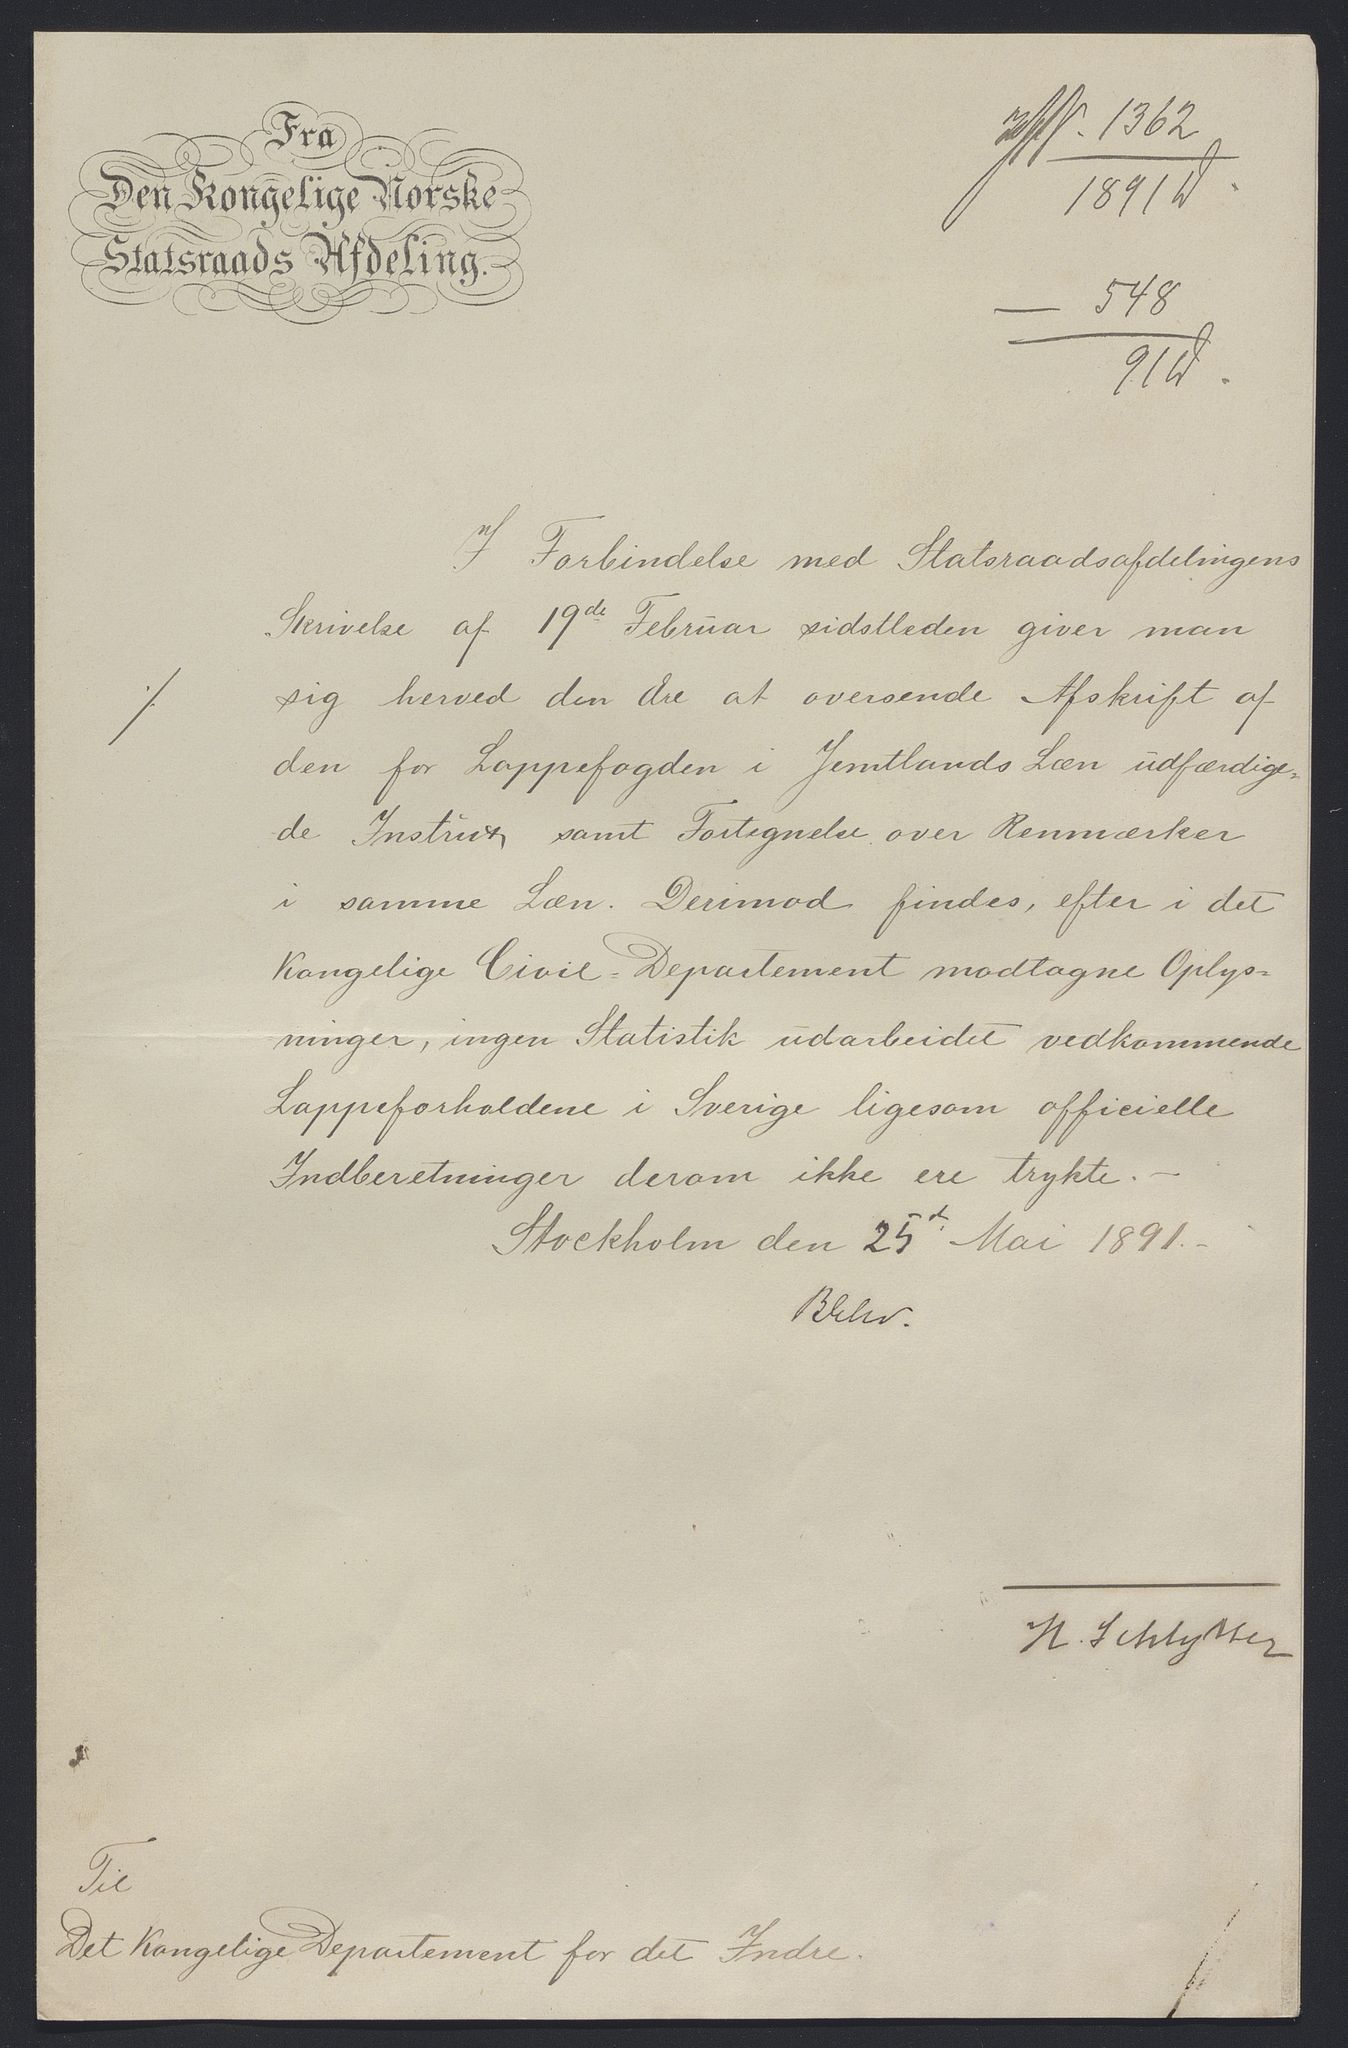 Fra
Den Kongelige Norske
Statsraads Afdeling.
1362
1891 D.
— 548
91 D.
I Forbindelse med Statsraadsafdelingens
Skrivelse af 19de Februar sidstleden giver man
./. sig herved den Ære at oversende Afskrift af
den for Lappefogden i Jemtlands Læn udfærdige=
de Instrux samt Fortegnelse over Renmærker
i samme Læn. Derimod findes, efter i det
Kongelige Civil=Departement modtagne Oplys=
ninger, ingen Statistik udarbeidet vedkommende
Lappeforholdene i Sverige ligesom officielle
Indberetninger derom ikke ere trykte.-
Stockholm den 25d Mai 1891.-
H. Schlytter
Til
Det Kongelige Departement for det Indre.